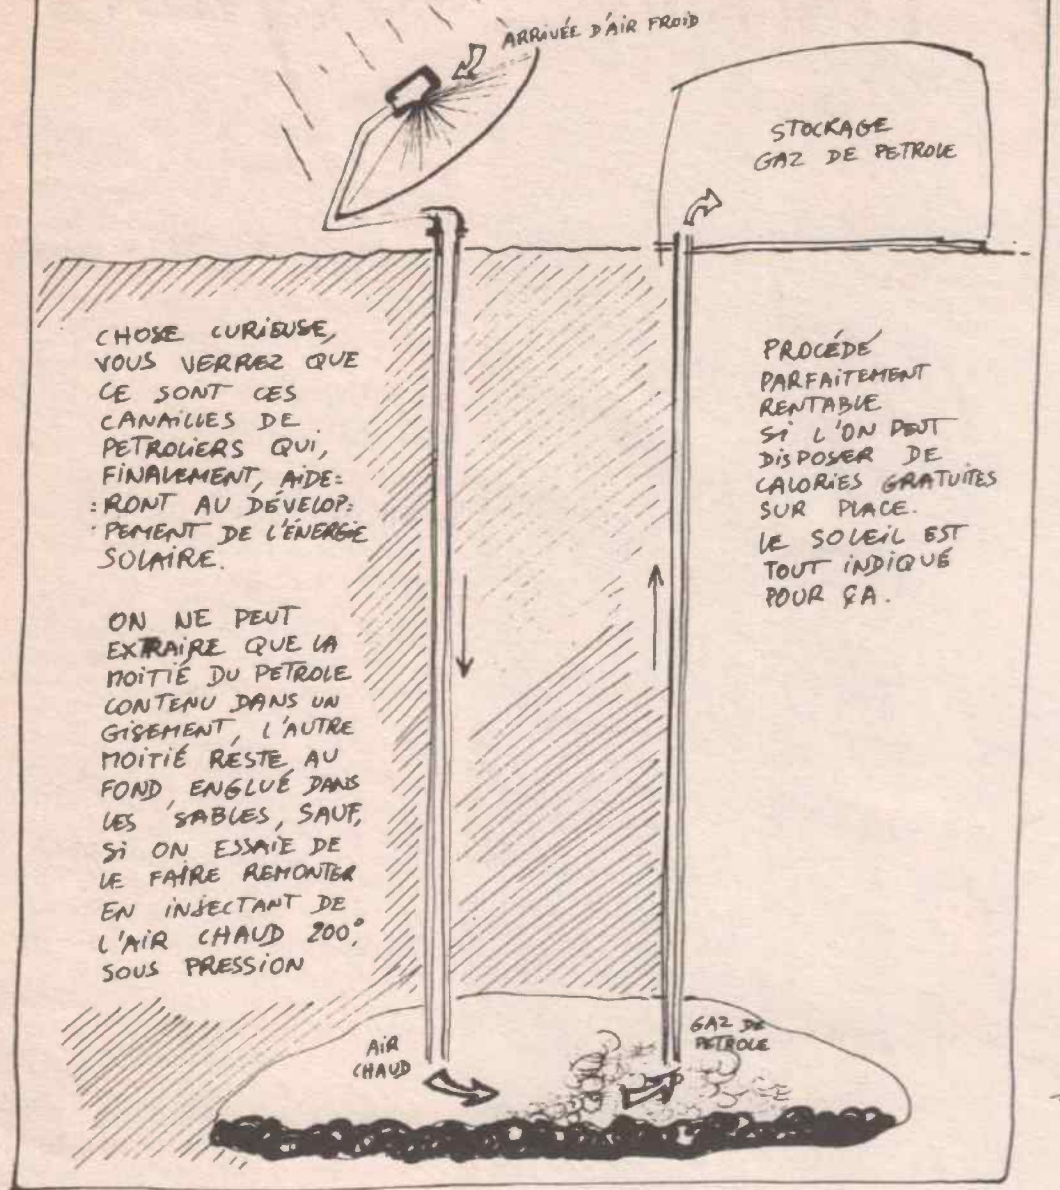 ARRIVÉE D'AIR FROID
STOCKAGE
GAZ DE PETROLE
CHOSE CURIEUSE,
VOUS VERREZ QUE
CE SONT CES
CANAILLES DE
PETROLIERS QUI,
FINALEMENT, AIDE=
=RONT AU DÉVELOP=
PEMENT DE L'ÉNERGIE
SOLAIRE.
ON NE PEUT
EXTRAIRE QUE LA
MOITIÉ DU PETROLE
CONTENU DANS UN
GISEMENT, L'AUTRE
MOITIÉ RESTE AU
FOND, ENGLUÉ DANS
LES SABLES, SAUF,
SI ON ESSAIE DE
LE FAIRE REMONTER
EN INJECTANT DE
L'AIR CHAUD 200°,
SOUS PRESSION
PROCÉDÉ
PARFAITEMENT
RENTABLE
SI L'ON PEUT
DISPOSER DE
CALORIES GRATUITES
SUR PLACE.
LE SOLEIL EST
TOUT INDIQUÉ
POUR ÇA.
AIR
CHAUD
GAZ DE
PETROLE